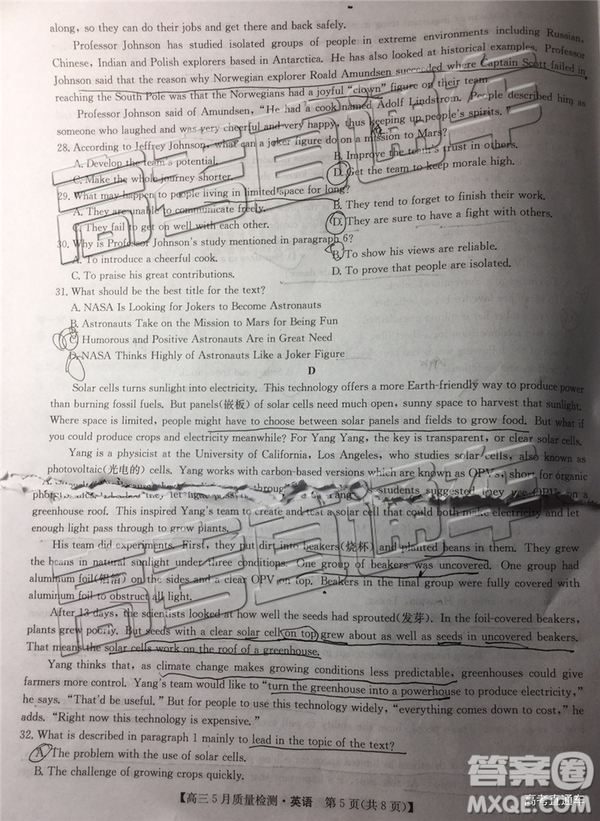 along, so they can do their jobs and then get there and back safely.
Professor Johnson has studied isolated groups of people in extreme environments including Russian,
Chinese, Indian and Polish explorers based in Antarctica. He has also looked at historical examples. Professor
Johnson said that the reason why Norwegian explorer Roald Amundsen succeeded where Captain Scott failed in
reaching the South Pole was that the Norwegians had a joyful "clown" figure on their team.
Professor Johnson said of Amundsen, "He had a cook named Adolf Lindstrom. People described him as
someone who laughed and was very cheerful and very happy, thus keeping up people's spirits."
28. According to Jeffrey Johnson, what can a joker figure do on a mission to Mars?
A. Develop the team's potential.
B. Improve the team's trust in others.
C. Make the whole journey shorter.
D. Get the team to keep morale high.
29. What may happen to people living in limited space for long?
A. They are unable to communicate freely.
B. They tend to forget to finish their work.
C. They fail to get on well with each other.
D. They are sure to have a fight with others.
30. Why is Professor Johnson's study mentioned in paragraph 6?
A. To introduce a cheerful cook.
B. To show his views are reliable.
C. To praise his great contributions.
D. To prove that people are isolated.
31. What should be the best title for the text?
A. NASA Is Looking for Jokers to Become Astronauts
B. Astronauts Take on the Mission to Mars for Being Fun
C. Humorous and Positive Astronauts Are in Great Need
D. NASA Thinks Highly of Astronauts Like a Joker Figure
D
Solar cells turns sunlight into electricity. This technology offers a more Earth-friendly way to produce power
than burning fossil fuels. But panels(嵌板) of solar cells need much open, sunny space to harvest that sunlight.
Where space is limited, people might have to choose between solar panels and fields to grow food. But what if
you could produce crops and electricity meanwhile? For Yang Yang, the key is transparent, or clear solar cells.
Yang is a physicist at the University of California, Los Angeles, who studies solar cells, also known as
photovoltaic(光电的) cells. Yang works with carbon-based versions which are known as OPVs, short for organic
students suggested they use OPVs on a
greenhouse roof. This inspired Yang's team to create and test a solar cell that could both make electricity and let
enough light pass through to grow plants.
His team did experiments. First, they put dirt into beakers(烧杯) and planted beans in them. They grew
the beans in natural sunlight under three conditions. One group of beakers was uncovered. One group had
aluminum foil(铝箔) on the sides and a clear OPV on top. Beakers in the final group were fully covered with
aluminum foil to obstruct all light.
After 13 days, the scientists looked at how well the seeds had sprouted(发芽). In the foil-covered beakers,
plants grew poorly. But seeds with a clear solar cell on top grew about as well as seeds in uncovered beakers.
That means the solar cells work on the roof of a greenhouse.
Yang thinks that, as climate change makes growing conditions less predictable, greenhouses could give
farmers more control. Yang's team would like to "turn the greenhouse into a powerhouse to produce electricity,"
he says. "That'd be useful." But for use to develop widely, "everything comes down to cost," he
adds. "Right now this technology is expensive."
32. What is described in paragraph 1 mainly to lead in the topic of the text?
A. The problem with the use of solar cells.
B. The challenge of growing crops quickly.
【高三5月质量检测·英语 第5页(共8页)】
高考直通车
高考直通车
答案圈
MXQE.COM
高考直通车